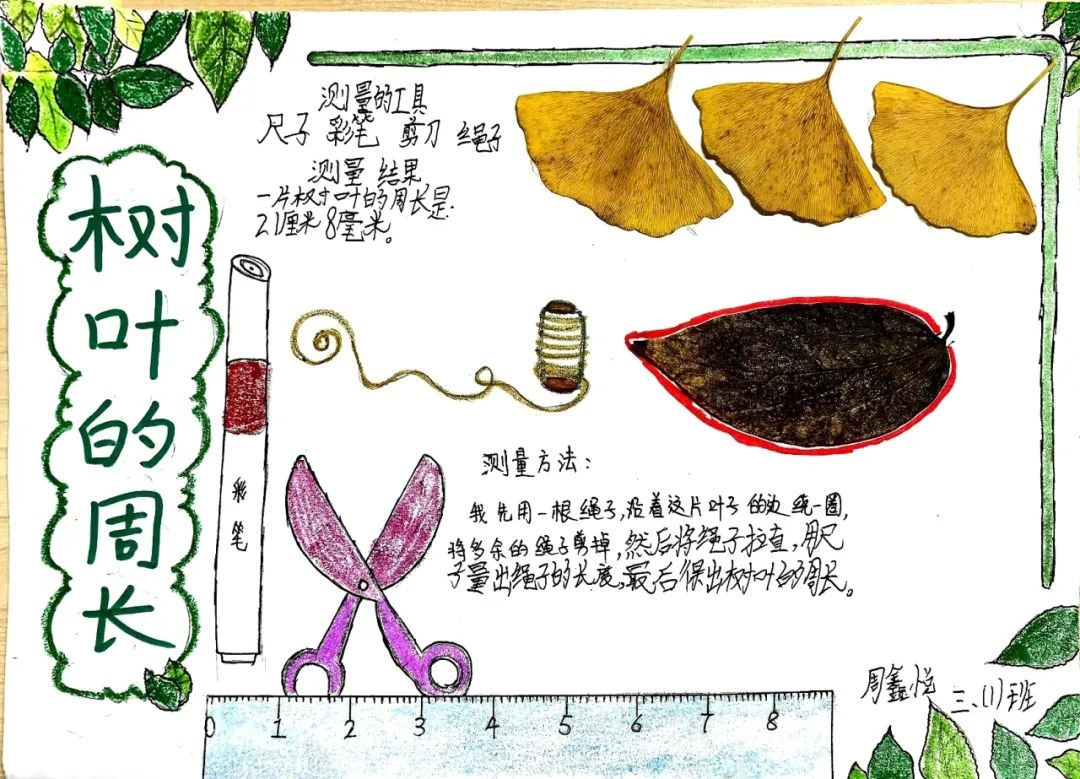 树叶的周长
测量的工具
尺子 彩笔 剪刀 绳子
测量 结果
一片树叶的周长是
21厘米8毫米。
彩笔
测量方法：
我先用一根绳子，沿着这片叶子的边绕一圈，
将多余的绳子剪掉，然后将绳子拉直，用尺
子量出绳子的长度，最后得出树叶的周长。
周鑫悦
三、(1)班
0 1 2 3 4 5 6 7 8